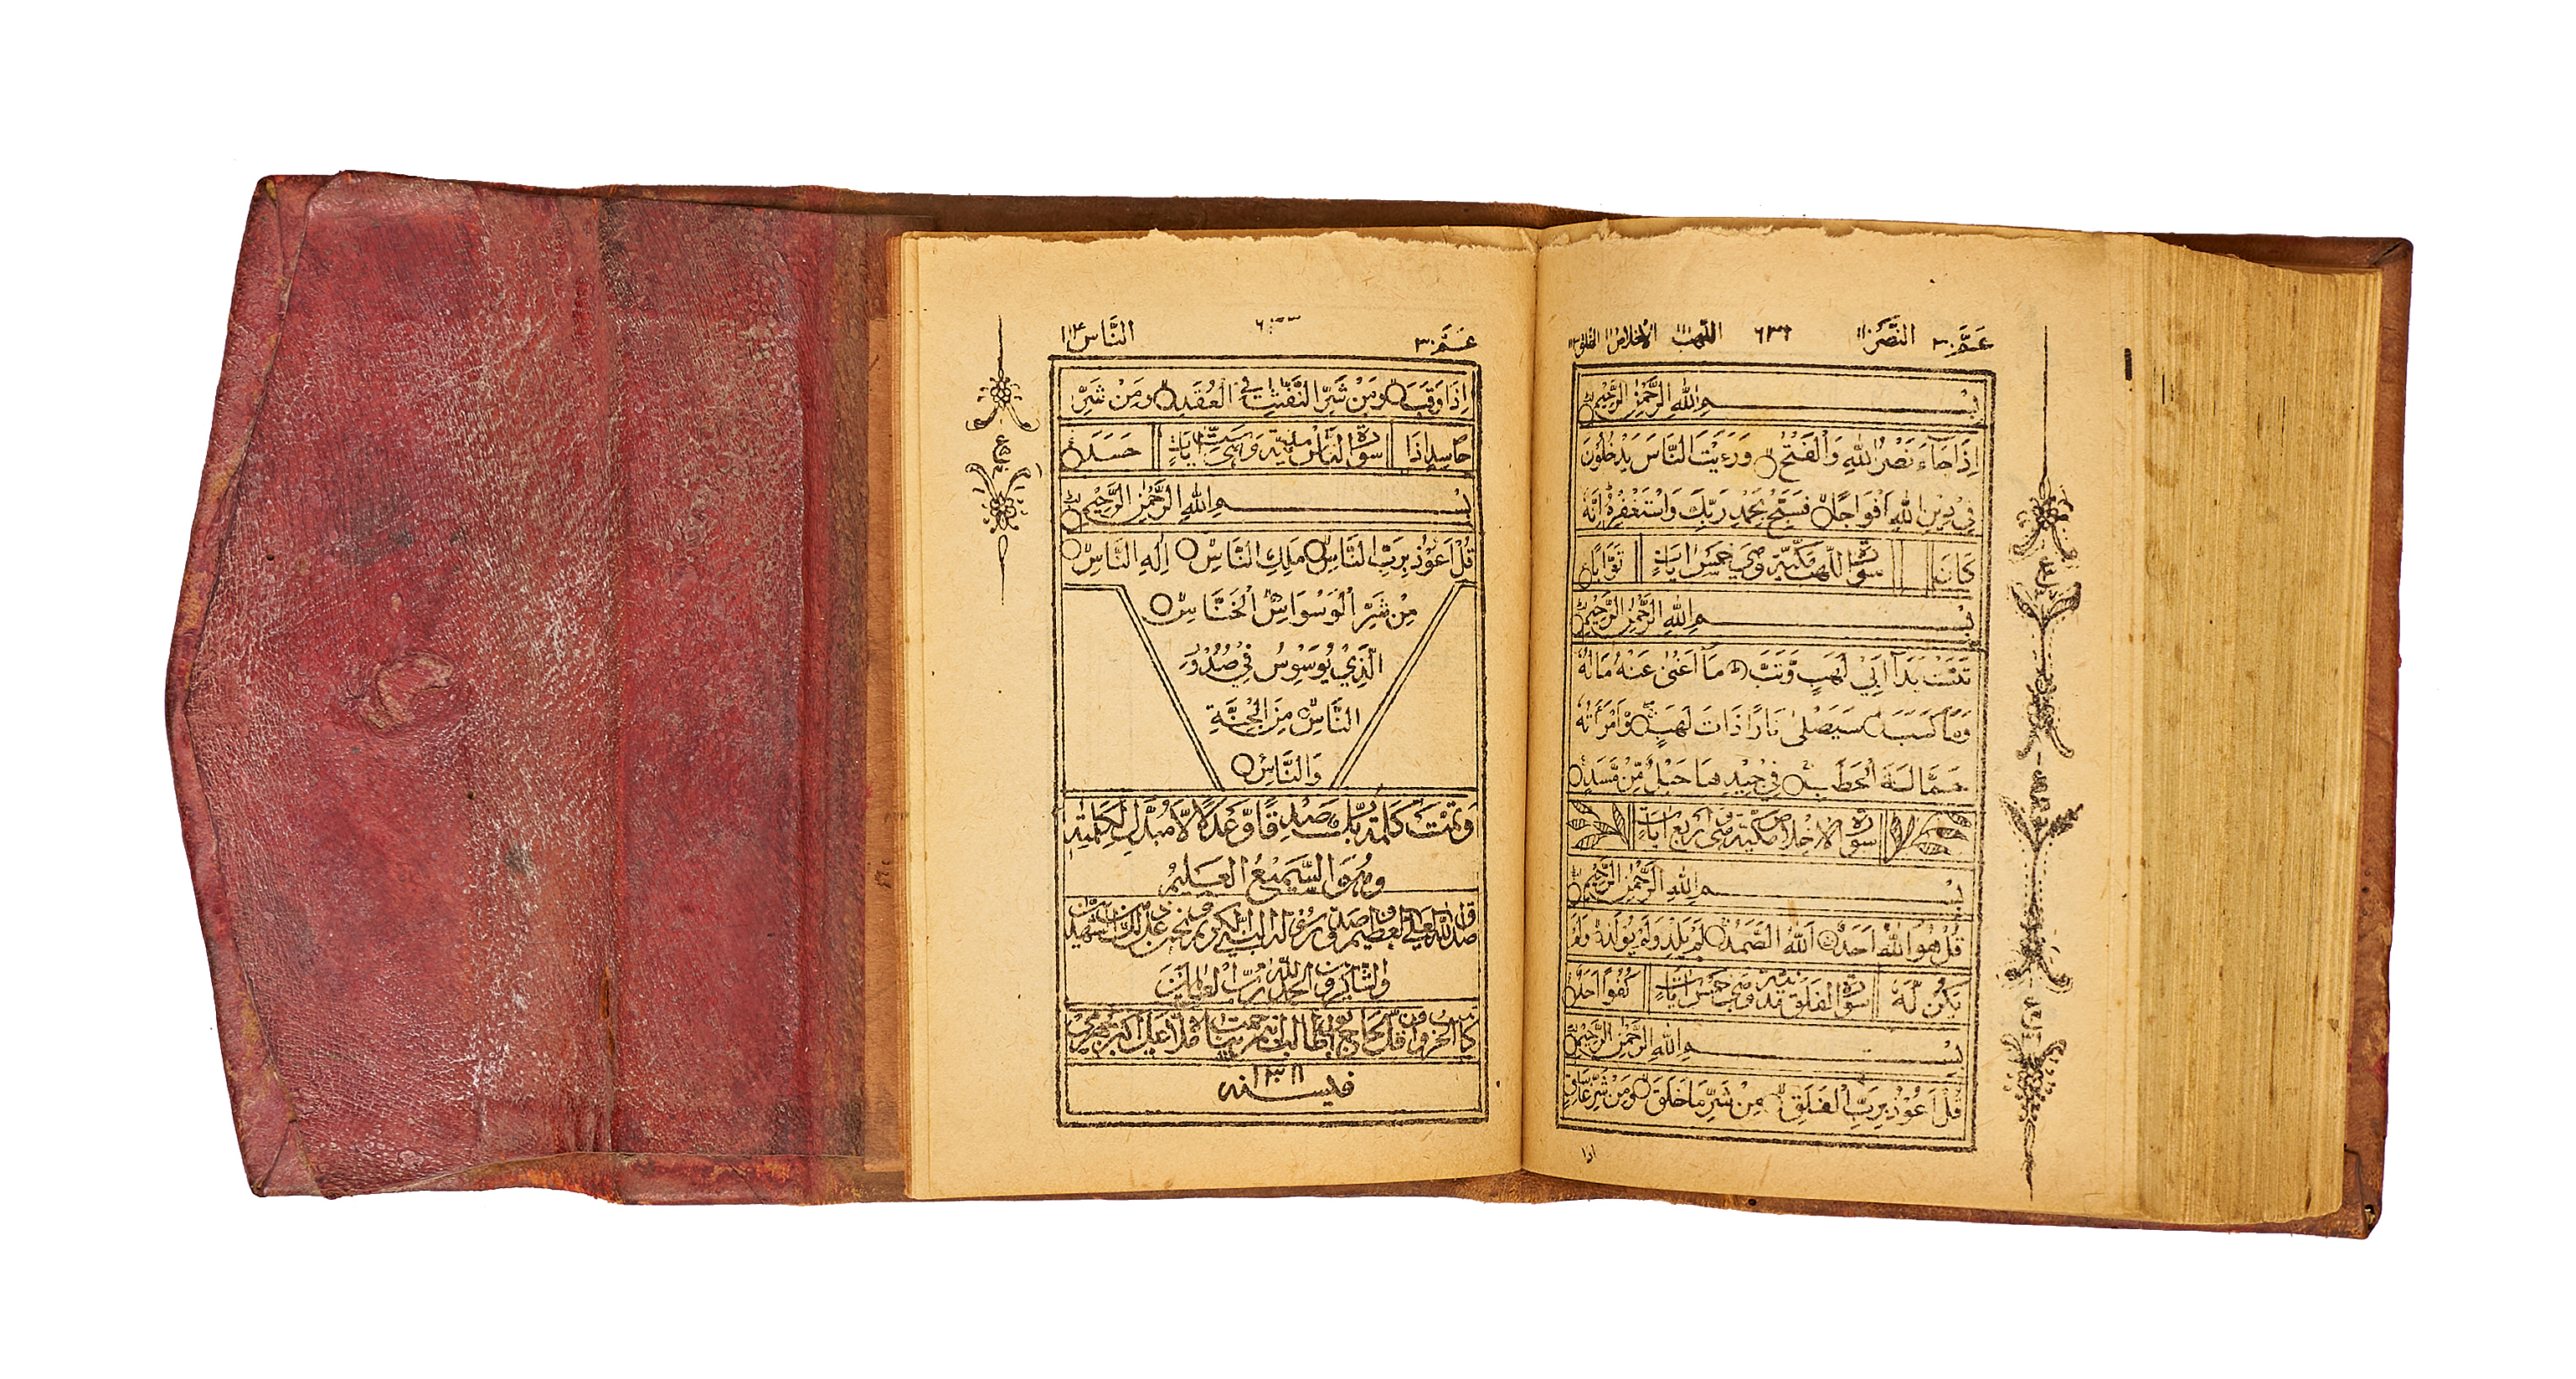 عَمَّ ٣٠ النَّصْر ١١٠ ٦٣٦ اللَّهَب الْاِخْلَاص الفلق
بِسْمِ اللهِ الرَّحْمٰنِ الرَّحِيْمِ
اِذَا جَآءَ نَصْرُ اللهِ وَالْفَتْحُ وَرَءَيْتَ النَّاسَ يَدْخُلُوْنَ
فِيْ دِيْنِ اللهِ اَفْوَاجًا فَسَبِّحْ بِحَمْدِ رَبِّكَ وَاسْتَغْفِرْهُ اِنَّهُ
كَانَ تَوَّابًا
سورة اللهب مكية وهي خمس ايات
بِسْمِ اللهِ الرَّحْمٰنِ الرَّحِيْمِ
تَبَّتْ يَدَآ اَبِيْ لَهَبٍ وَّتَبَّ مَآ اَغْنٰى عَنْهُ مَالُهُ
وَمَا كَسَبَ سَيَصْلٰى نَارًا ذَاتَ لَهَبٍ وَّامْرَاَتُهُ
حَمَّالَةَ الْحَطَبِ فِيْ جِيْدِهَا حَبْلٌ مِّنْ مَّسَدٍ
سورة الاخلاص مكية وهي اربع ايات
بِسْمِ اللهِ الرَّحْمٰنِ الرَّحِيْمِ
قُلْ هُوَ اللهُ اَحَدٌ اَللهُ الصَّمَدُ لَمْ يَلِدْ وَلَمْ يُوْلَدْ وَلَمْ
يَكُنْ لَّهُ كُفُوًا اَحَدٌ
سورة الفلق مدنية وهي خمس ايات
بِسْمِ اللهِ الرَّحْمٰنِ الرَّحِيْمِ
قُلْ اَعُوْذُ بِرَبِّ الْفَلَقِ مِنْ شَرِّ مَا خَلَقَ وَمِنْ شَرِّ غَاسِقٍ
اذا
عَمَّ ٣٠ النَّاس ١١٤
اِذَا وَقَبَ وَمِنْ شَرِّ النَّفّٰثٰتِ فِي الْعُقَدِ وَمِنْ شَرِّ
حَاسِدٍ اِذَا حَسَدَ
سورة الناس مدنية وهي ست ايات
بِسْمِ اللهِ الرَّحْمٰنِ الرَّحِيْمِ
قُلْ اَعُوْذُ بِرَبِّ النَّاسِ مَلِكِ النَّاسِ اِلٰهِ النَّاسِ
مِنْ شَرِّ الْوَسْوَاسِ الْخَنَّاسِ
الَّذِيْ يُوَسْوِسُ فِيْ صُدُوْرِ
النَّاسِ مِنَ الْجِنَّةِ
وَالنَّاسِ
وَتَمَّتْ كَلِمَةُ رَبِّكَ صِدْقًا وَّعَدْلًا لَّا مُبَدِّلَ لِكَلِمٰتِهِ
وَهُوَ السَّمِيْعُ الْعَلِيْمُ
صدق الله العلي العظيم وصدق رسوله النبي الكريم ونحن على ذلك من الشاهدين
والشاكرين والحمد لله رب العالمين
في سنه ١٣١١